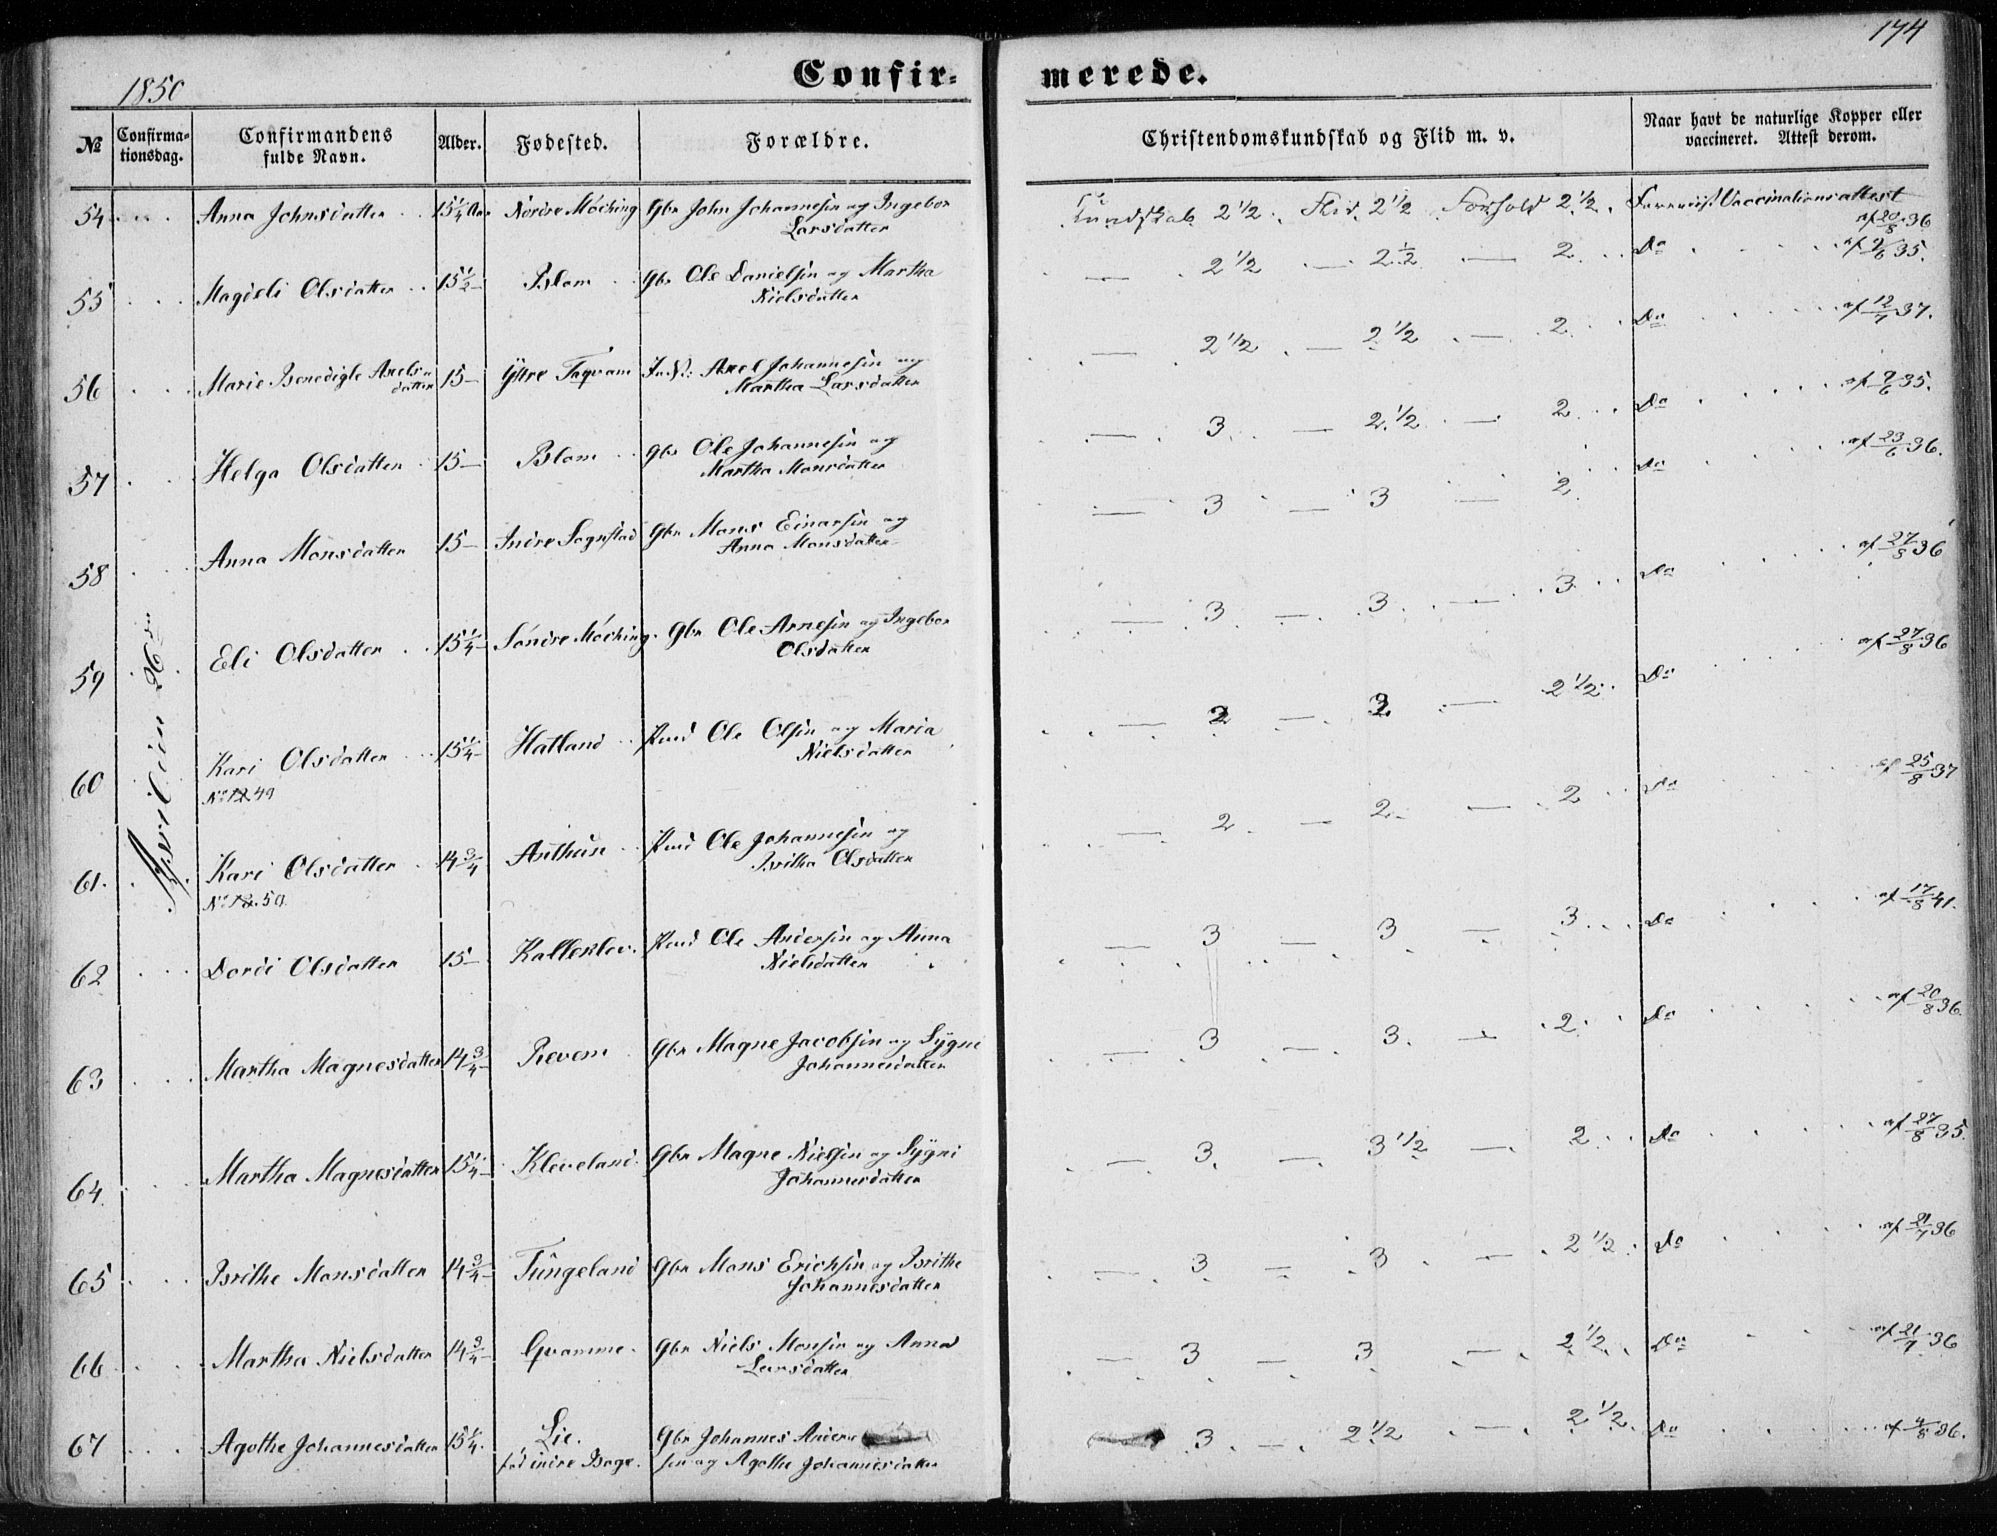 174
1850
Confir-
merede.
№ Confirma-tionsdag. Confirmandens fulde Navn. Alder. Fødested. Forældre. Christendomskundskab og Flid m. v. Naar havt de naturlige Kopper eller vaccineret. Attest derom.
April den 26de
54 Anna Johnsdatter 15 1/4 Aar Nordre Möching Gbr John Johannesen og Ingebor Kundskab 2 1/2 Flid 2 1/2 Forhold 2 1/2 Vaccinationsattest
Larsdatter af 20/8 36
55 Magdeli Olsdatter 15 1/2 Blom Gbr Ole Danielsen og Martha — 2 1/2 — 2 1/2 — 2 Do af 9/6 35.
Nielsdatter
56 Marie Benedigte Axels- 15 Yttre Taqvam Axel Johannesen og — 2 1/2 — 2 1/2 — 2 Do af 12/7 37.
datter Martha Larsdatter
57 Helga Olsdatter 15 Blom Gbr Ole Johannesen og — 3 — 2 1/2 — 2 Do af 9/6 35.
Martha Monsdatter
58 Anna Monsdatter 15 Indre Sognstad Gbr Mons Einarsen og — 3 — 3 — 2 Do af 23/6 36.
Anna Monsdatter
59 Eli Olsdatter 15 1/4 Söndre Möching Gbr Ole Arnesen og Ingebor — 3 — 3 — 3 Do af 27/8 36
Olsdatter
60 Kari Olsdatter 15 1/4 Hatland Pmd Ole Olsen og Maria — — 2 1/2 Do af 27/8 36
No 49 Nielsdatter
61. Kari Olsdatter 14 3/4 Pmd Ole Johannesen og — 2 — 2 — 2 Do af 25/8 37
No 50 Britha Olsdatter
62 Dordi Olsdatter 15 Kalleklev Pmd Ole Andersen og Anna — 3 — 3 — 3 Do af 17/8 41.
Nielsdatter
63 Martha Magnesdatter 14 3/4 Revem Gbr Magne Jacobsen og Sygni — 3 — 3 — 2 Do af 20/8 36.
Johannesdatter
64 Martha Magnesdatter 15 1/4 Kleveland Gbr Magne Nielsen og Sygni — 3 — 3 1/2 — 2 Do af 27/8 35.
Johannesdatter
65 Brithe Monsdatter 14 3/4 Tungeland Gbr Mons Erichsen og Brithe — 3 — 3 — 2 1/2 Do af 21/7 36
Johannesdatter
66 Martha Nielsdatter 14 3/4 Gvamme Gbr Niels Monsen og Anna — 3 — 3 — 2 1/2 Do af 21/7 36
Larsdatter
67 Agothe Johannesdatter 15 1/4 Lie. Gbr Johannes Ander- 3 — 2 1/2 — 2 1/2 Do af 4/8 36.
fød indre Boge. sen og Agothe Johannesdatter